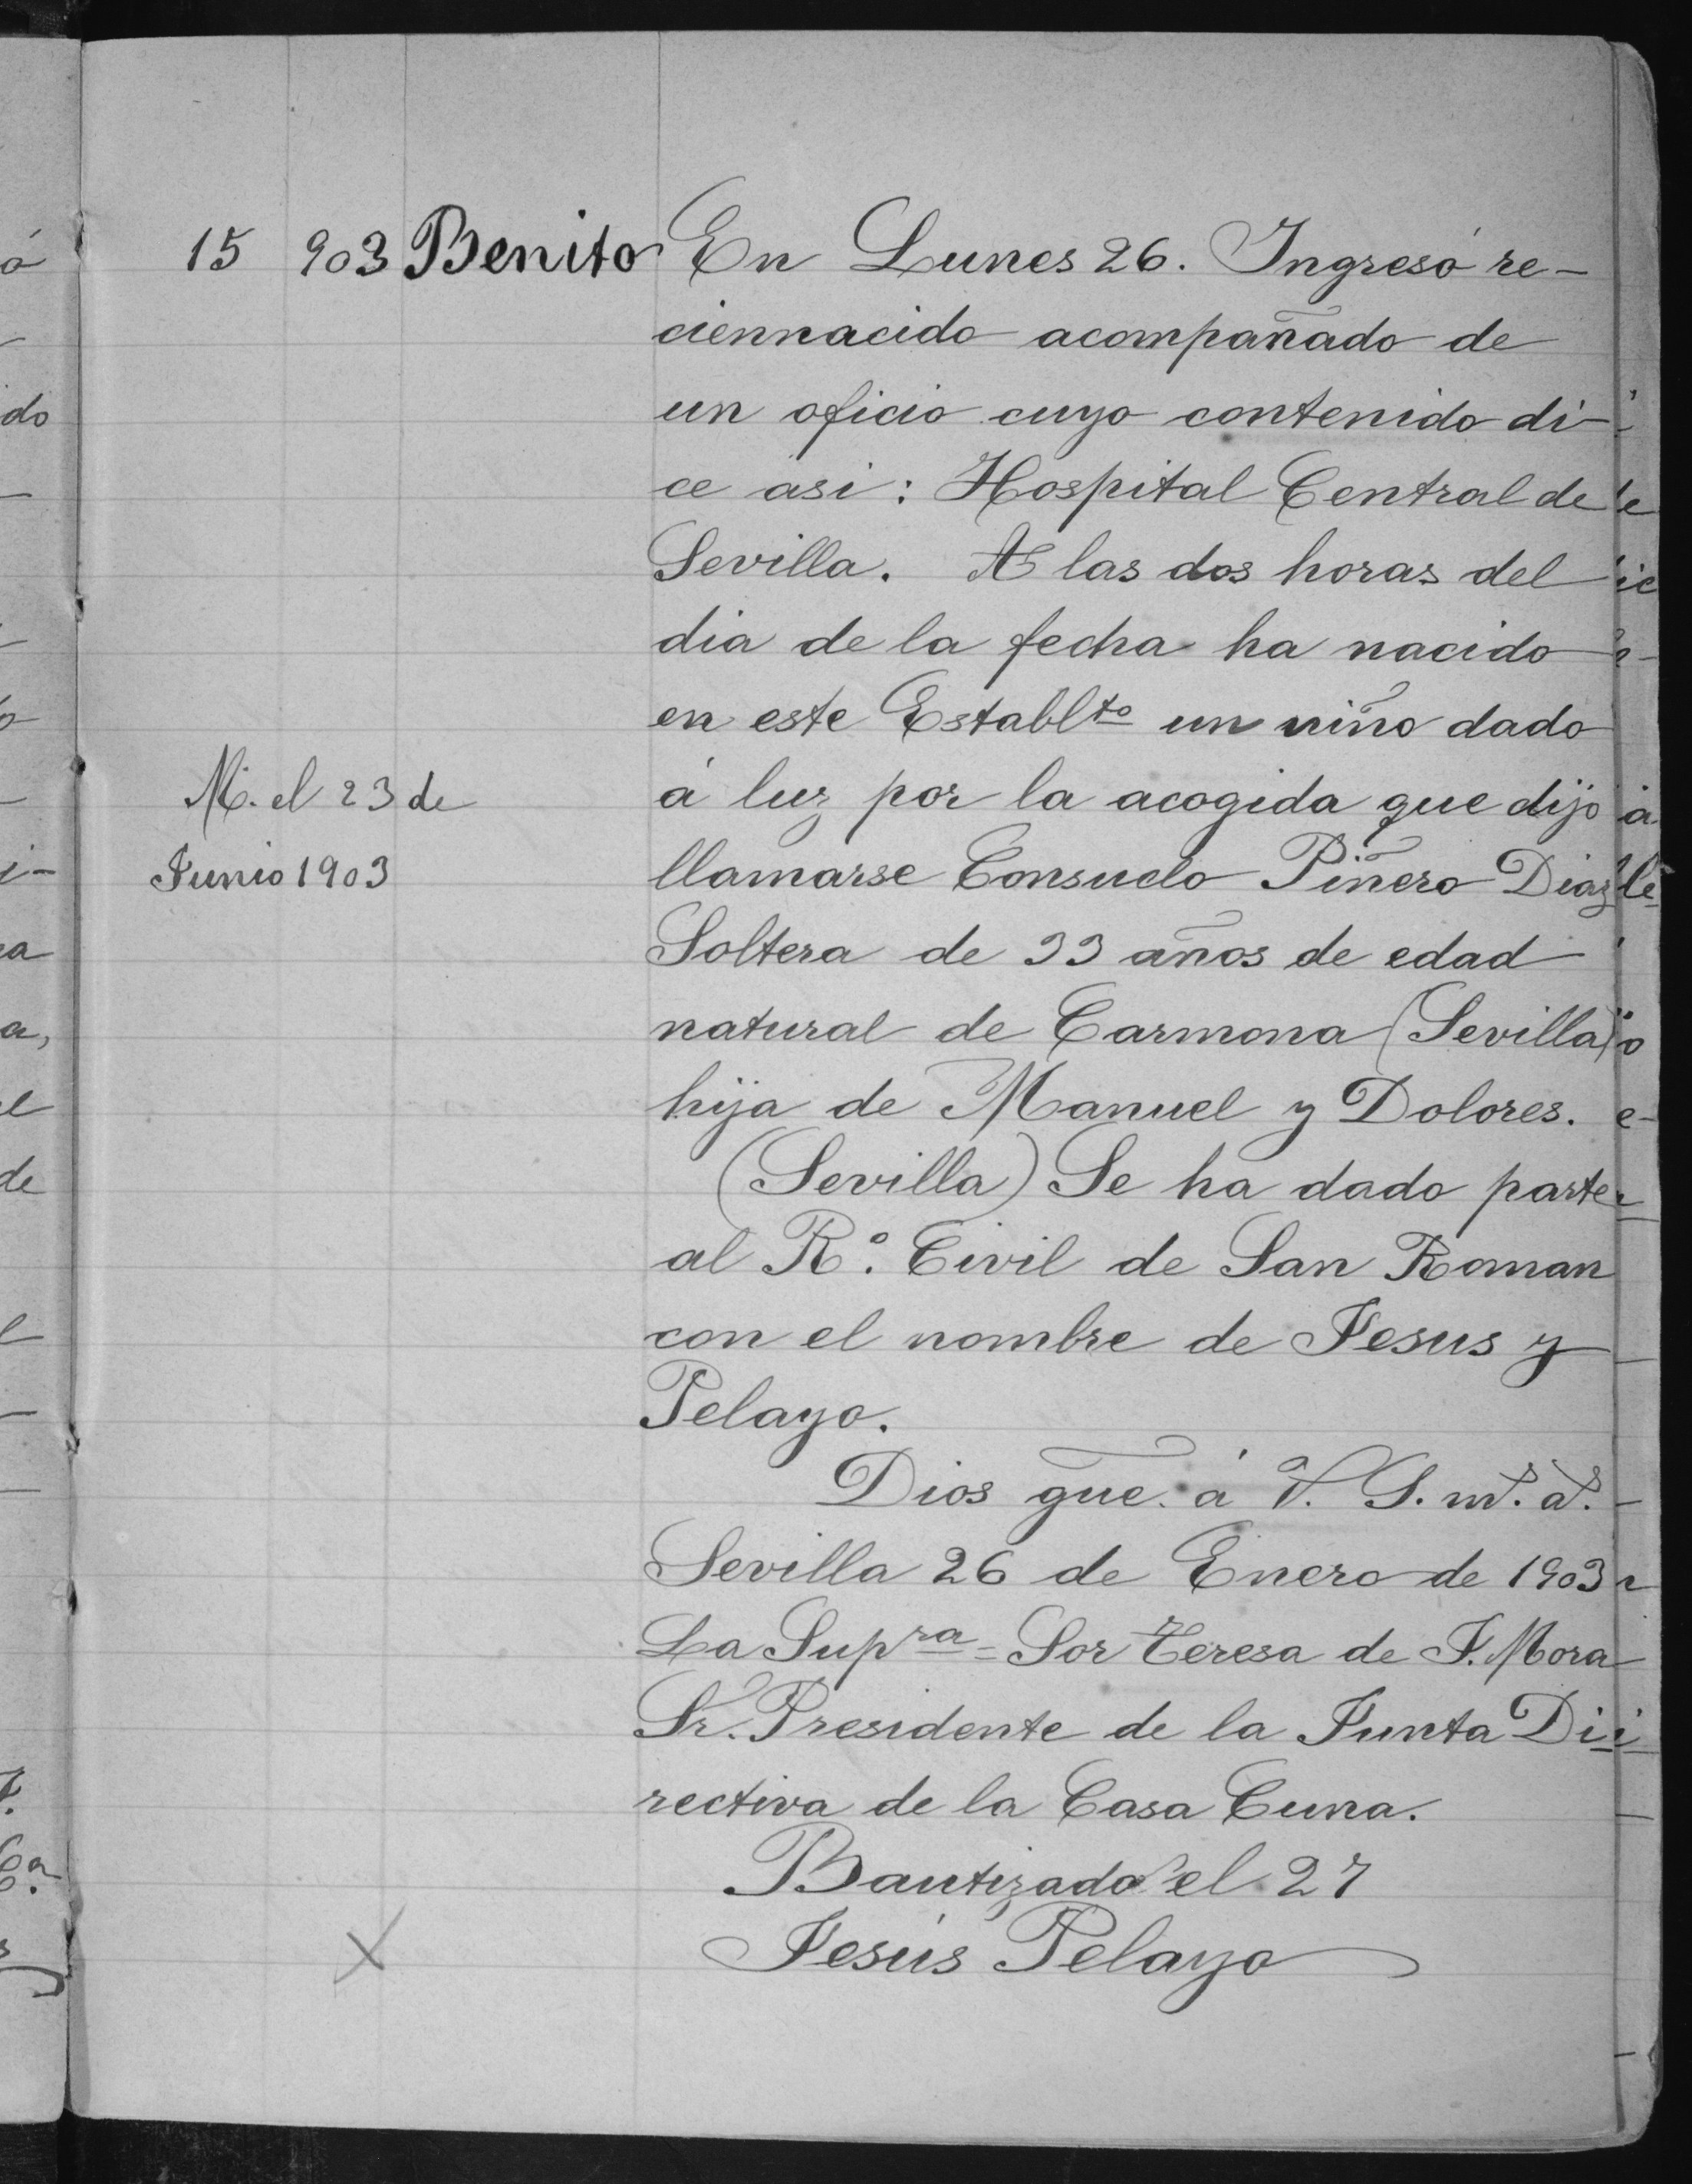 15 903 Benito En Lunes 26. Ingresó re-
ciennacido acompañado de
un oficio cuyo contenido di-
ce asi: Hospital Central de
Sevilla. A las dos horas del
dia de la fecha ha nacido
en este Establto un niño dado
á luz por la acogida que dijo
llamarse Consuelo Piñero Diaz
Soltera de 33 años de edad
natural de Carmona (Sevilla)
hija de Manuel y Dolores.
(Sevilla) Se ha dado parte
al R.º Civil de San Roman
con el nombre de Jesus y
Pelayo.
Dios gue. á V. S. ms. as.
Sevilla 26 de Enero de 1903
La Supra = Sor Teresa de J. Mora
Sr. Presidente de la Junta Di-
rectiva de la Casa Cuna.
Bautizado el 27
Jesús Pelayo
M. el 23 de
Junio 1903